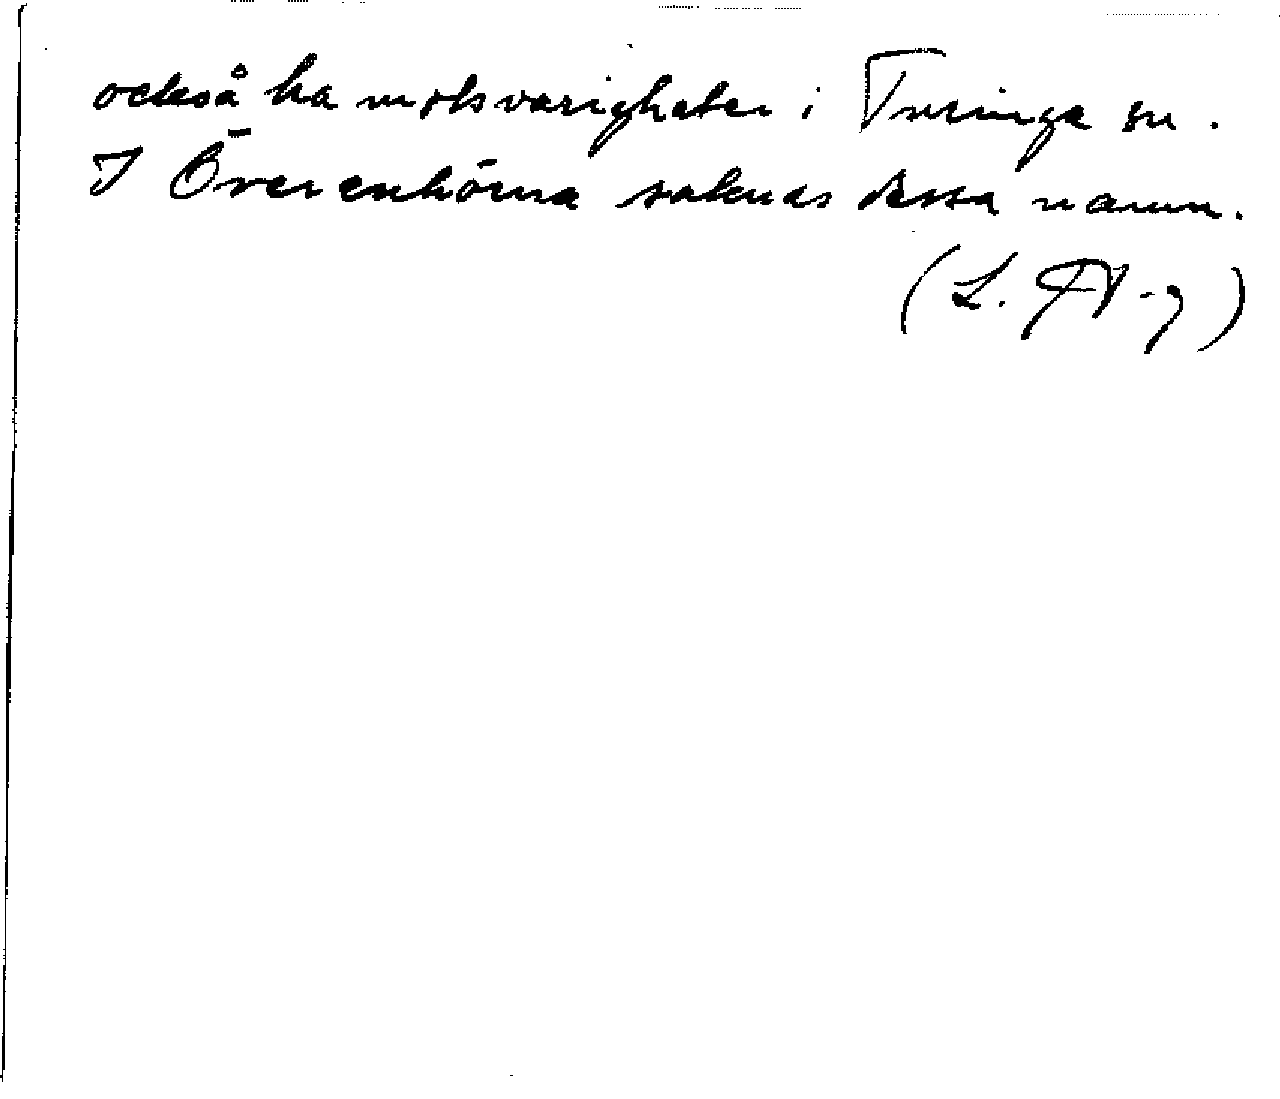 också ha motsvarigheter i Turinga sn.
I Överenhörna saknas dessa namn.
(L. Fl-g)